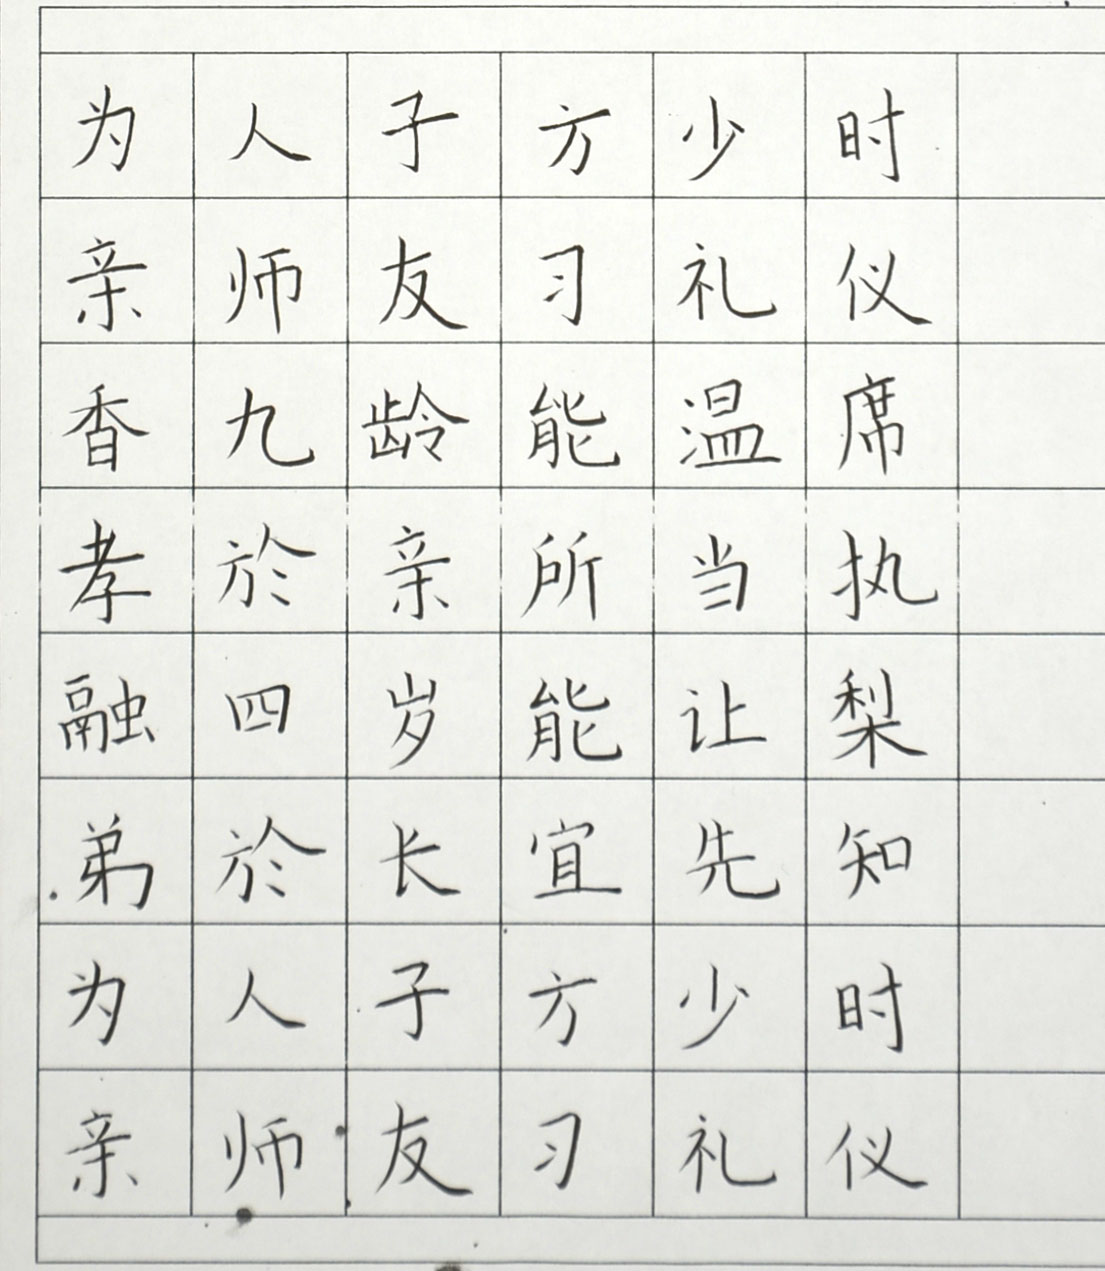 为人子方少时
亲师友习礼仪
香九龄能温席
孝於亲所当执
融四岁能让梨
弟於长宜先知
为人子方少时
亲师友习礼仪